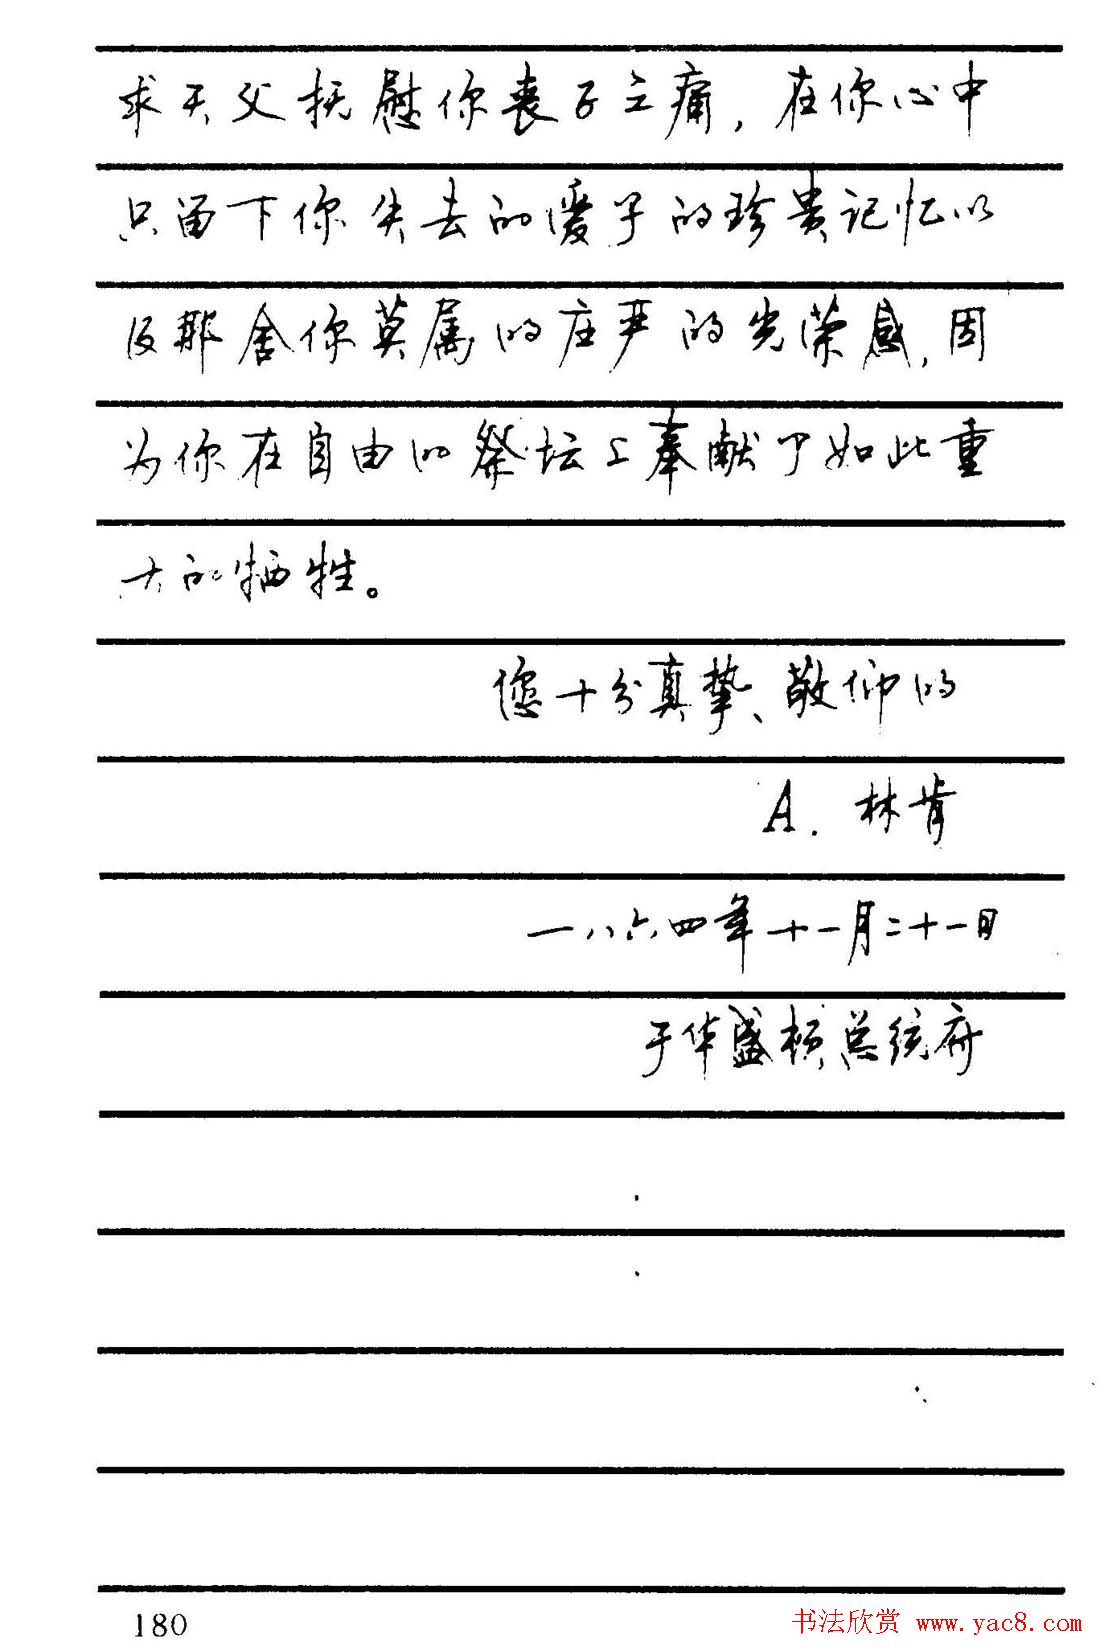 求天父抚慰你丧子之痛，在你心中
只留下你失去的爱子的珍贵记忆以
及那舍你莫属的庄严的光荣感，因
为你在自由的祭坛上奉献了如此重
大的牺牲。
您十分真挚、敬仰的
A．林肯
一八六四年十一月二十一日
于华盛顿总统府
180
书法欣赏 www.yac8.com